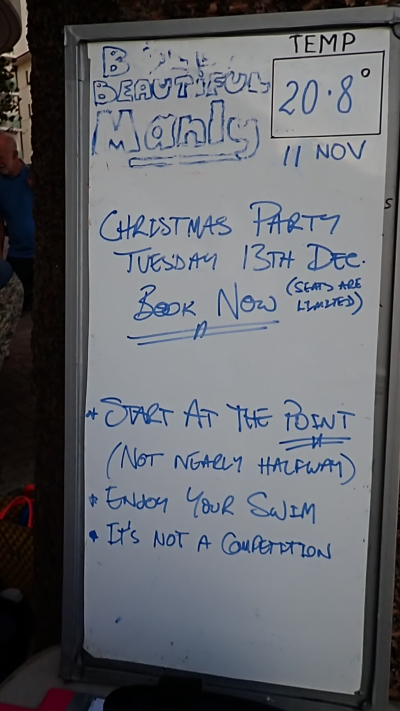 TEMP
BEAUTIFUL
20.8°
Manly
11 NOV
CHRISTMAS PARTY
TUESDAY 13TH DEC.
BOOK NOW (SEATS ARE LIMITED)
* START AT THE POINT
(NOT NEARLY HALFWAY)
* ENJOY YOUR SWIM
* IT'S NOT A COMPETITION